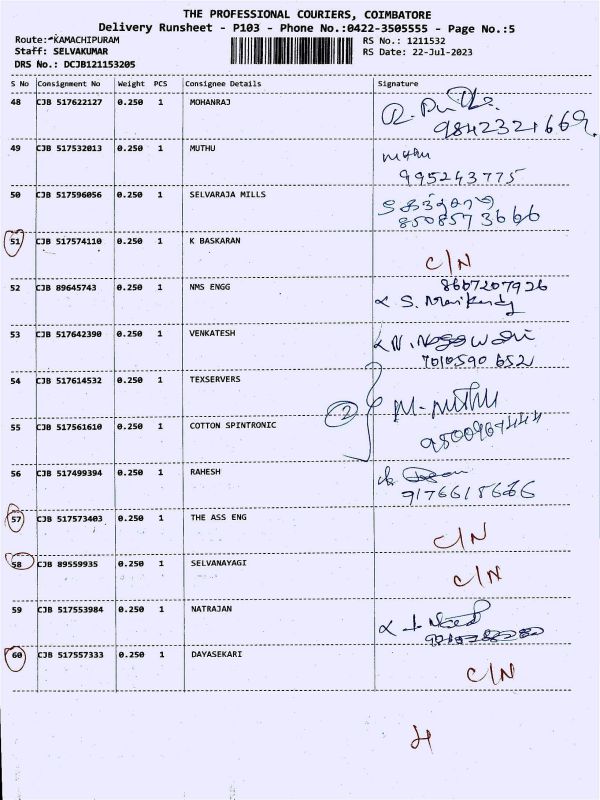 THE PROFESSIONAL COURIERS, COIMBATORE
Delivery Runsheet - P103 - Phone No.:0422-3505555 - Page No.:5
Route: KAMACHIPURAM RS No.: 1211532
Staff: SELVAKUMAR RS Date: 22-Jul-2023
DRS No.: DCJB121153205
S No Consignment No Weight PCS Consignee Details Signature
48 CJB 517622127 0.250 1 MOHANRAJ
9842321669
49 CJB 517532013 0.250 1 MUTHU muthu
995243775
50 CJB 517596056 0.250 1 SELVARAJA MILLS
8508573666
51 CJB 517574110 0.250 1 K BASKARAN
C/N
8667207926
52 CJB 89645743 0.250 1 NMS ENGG
53 CJB 517642390 0.250 1 VENKATESH
7010590652
54 CJB 517614532 0.250 1 TEXSERVERS
2 M. Muthu
55 CJB 517561610 0.250 1 COTTON SPINTRONIC
56 CJB 517499394 0.250 1 RAHESH
57 CJB 517573403 0.250 1 THE ASS ENG
C/N
58 CJB 89559935 0.250 1 SELVANAYAGI
C/N
59 CJB 517553984 0.250 1 NATRAJAN
60 CJB 517557333 0.250 1 DAYASEKARI
C/N